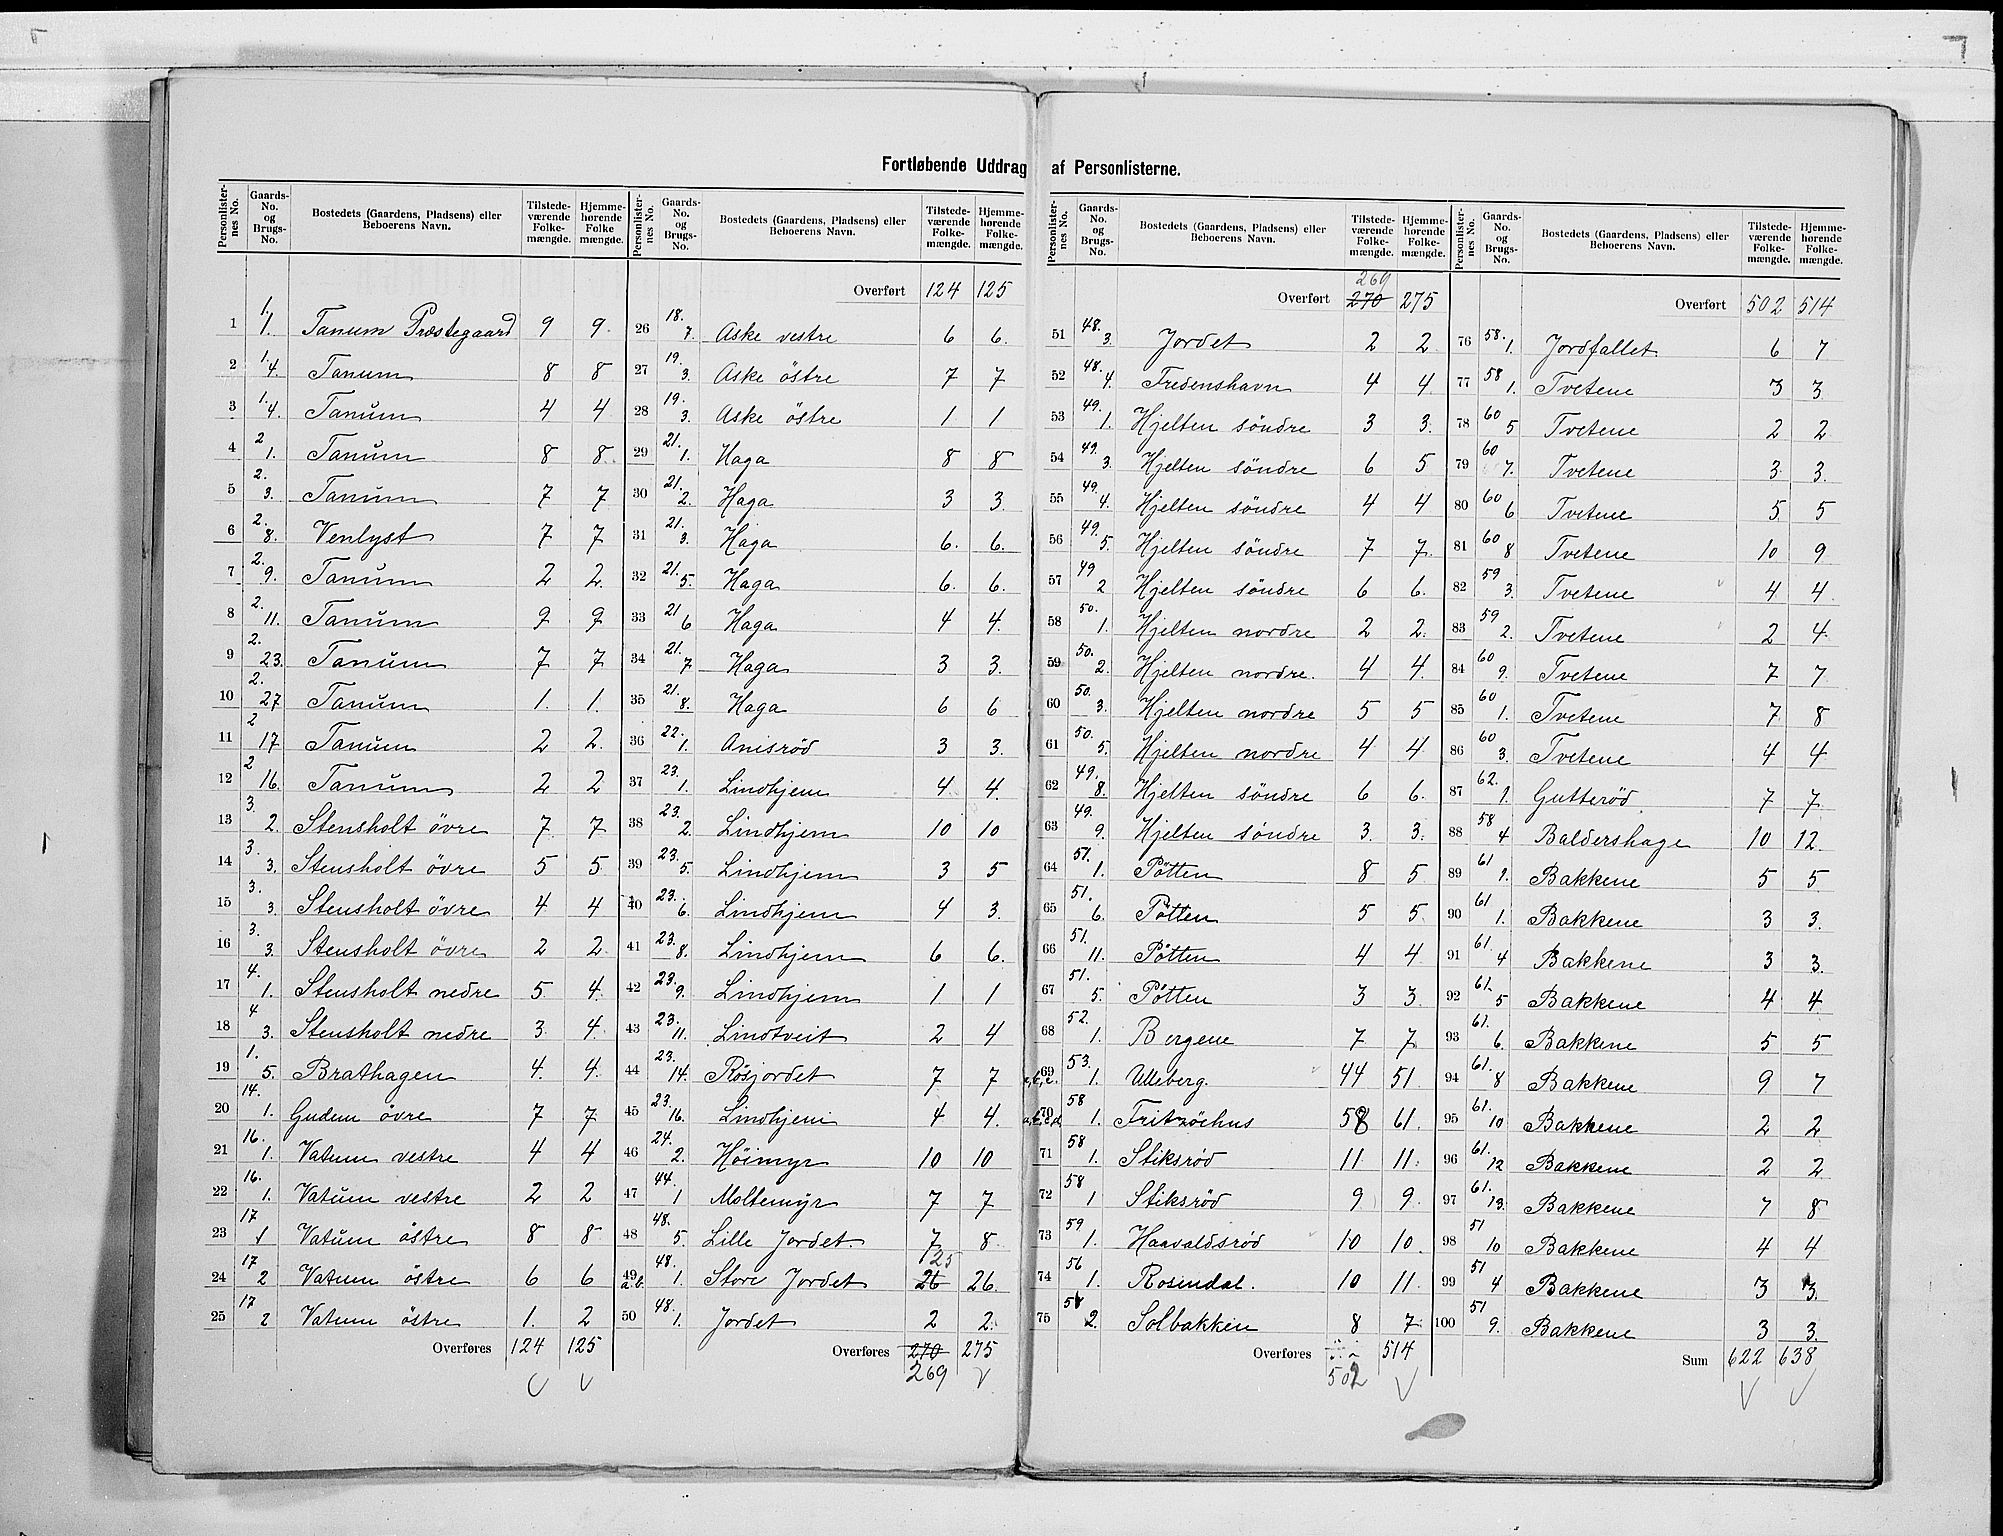 Fortløbende Uddrag af Personlisterne.
Personlister-nes No. | Gaards-No. og Brugs-No. | Bostedets (Gaardens, Pladsens) eller Beboerens Navn. | Tilstede-værende Folke-mængde. | Hjemme-hørende Folke mængde.
1 | 1. 1. | Tanum Præstegaard | 9 | 9.
2 | 1. 4. | Tanum | 8 | 8
3 | 1. 4. | Tanum | 4 | 4
4 | 2 1. | Tanum | 8 | 8
5 | 2. 3. | Tanum | 7 | 7
6 | 2. 8. | Venlyst | 7 | 7
7 | 2. 9. | Tanum | 2 | 2.
8 | 2. 11. | Tanum | 9 | 9
9 | 2. 23. | Tanum | 7 | 7
10 | 2. 27 | Tanum | 1. | 1.
11 | 2 17 | Tanum | 2 | 2.
12 | 2 16. | Tanum | 2 | 2
13 | 3. 2. | Stensholt övre | 7 | 7
14 | 3. 3. | Stensholt övre | 5 | 5
15 | 3. 3. | Stensholt övre | 4 | 4
16 | 3. 3. | Stensholt övre | 2 | 2
17 | 4. 1. | Stensholt nedre | 5 | 4.
18 | 4 3. | Stensholt nedre | 3. | 4.
19 | 1. 5. | Brathagen | 4. | 4.
20 | 14. 1. | Gudem övre | 7 | 7
21 | 16. 1. | Vatum vestre | 4 | 4
22 | 16. 1. | Vatum vestre | 2 | 2
23 | 17 1 | Vatum östre | 8 | 8
24 | 17 2 | Vatum östre | 6 | 6
25 | 17 2 | Vatum östre | 1. | 2
Overføres | 124 | 125
Personlister-nes No. | Gaards-No. og Brugs-No. | Bostedets (Gaardens, Pladsens) eller Beboerens Navn. | Tilstede-værende Folke-mængde. | Hjemme-hørende Folke-mængde.
Overført | 124 | 125
26 | 18. 7. | Aske vestre | 6 | 6.
27 | 19. 3. | Aske östre | 7 | 7
28 | 19. 3. | Aske östre | 1 | 1
29 | 21. 1. | Haga | 8 | 8
30 | 21. 2. | Haga | 3 | 3.
31 | 21. 3. | Haga | 6. | 6.
32 | 21. 5. | Haga | 6. | 6.
33 | 21 6 | Haga | 4 | 4.
34 | 21. 7. | Haga | 3 | 3.
35 | 21. 8. | Haga | 6 | 6
36 | 22. 1. | Anisrød | 3 | 3.
37 | 23. 1. | Lindhjem | 4 | 4.
38 | 23. 2. | Lindhjem | 10 | 10
39 | 23. 5. | Lindhjem | 3 | 5
40 | 23. 6. | Lindhjem | 4 | 3.
41 | 23. 8. | Lindhjem | 6 | 6.
42 | 23. 9. | Lindhjem | 1 | 1
43 | 23. 11. | Lindtveit | 2 | 4
44 | 23. 14. | Røsjordet | 7 | 7
45 | 23. 16. | Lindhjem | 4 | 4.
46 | 24. 2. | Höimyr | 10 | 10
47 | 44. 1 | Moltemyr | 7 | 7
48 | 48. 5. | Lille Jordet. | 7 | 8.
49 a.b. | 48. 1. | Store Jordet | 26 25 | 26.
50 | 48. 1. | Jordet | 2 | 2.
Overføres | 270 269 | 275
Personlister-nes No. | Gaards-No. og Brugs-No. | Bostedets (Gaardens, Pladsens) eller Beboerens Navn. | Tilstede-værende Folke-mængde. | Hjemme-hørende Folke-mængde.
Overført | 269 270 | 275
51 | 48. 3. | Jordet | 2 | 2
52 | 48. 4. | Fredenshavn | 4 | 4
53 | 49. 1. | Hjelten söndre | 3 | 3.
54 | 49. 3. | Hjelten söndre | 6 | 5
55 | 49. 4. | Hjelten söndre | 4 | 4
56 | 49. 5. | Hjelten söndre | 7 | 7.
57 | 49 2 | Hjelten söndre | 6 | 6.
58 | 50. 1. | Hjelten nordre | 2 | 2.
59 | 50. 2. | Hjelten nordre. | 4 | 4.
60 | 50. 3. | Hjelten nordre | 5 | 5
61 | 50. 5. | Hjelten nordre | 4 | 4.
62 | 49. 8. | Hjelten söndre | 6 | 6.
63 | 49. 9. | Hjelten söndre | 3. | 3.
64 | 51. 1. | Pötten | 8 | 5
65 | 51. 6. | Pötten | 5 | 5.
66 | 51. 11. | Pötten | 4 | 4
67 | 51. 5. | Pötten | 3 | 3.
68 | 52. 1. | Bergene | 7 | 7.
69 | 53. 1. | Ulleberg. | 44 | 51.
70 | 58 1. | Fritzöehus | 58 | 61.
71 | 58 1. | Stiksrød | 11 | 11.
72 | 58 1 | Stiksrød | 9 | 9.
73 | 59 1. | Haavaldsrød | 10 | 10.
74 | 56 1. | Rosendal. | 10 | 11.
75 | 2. | Solbakken | 8 | 7.
Overføres | 502 | 514
Personlister-nes No. | Gaards-No. og Brugs-No. | Bostedets (Gaardens, Pladsens) eller Beboerens Navn. | Tilstede-værende Folke-mængde. | Hjemme-hørende Folke-mængde.
Overført | 502 | 514
76 | 58. 1. | Jordfallet | 6 | 7
77 | 58 1. | Tvetene | 3 | 3
78 | 60 5 | Tvetene | 2 | 2
79 | 60 7. | Tvetene | 3. | 3.
80 | 60 6 | Tvetene | 5. | 5
81 | 60 8 | Tvetene | 10 | 9
82 | 59 3. | Tvetene | 4 | 4.
83 | 59 2. | Tvetene | 2 | 4.
84 | 60 9. | Tvetene | 7 | 7
85 | 60 1. | Tvetene | 7 | 8
86 | 60 3. | Tvetene | 4 | 4
87 | 62. 1. | Gutterød | 7 | 7.
88 | 58 4 | Baldershage | 10 | 12.
89 | 61 1. | Bakkene | 5 | 5
90 | 61 1. | Bakkene | 3 | 3.
91 | 61. 4 | Bakkene | 3 | 3.
92 | 61. 5 | Bakkene | 4 | 4
93 | 61. 6. | Bakkene | 5 | 5
94 | 61. 8 | Bakkene | 9 | 7
95 | 61. 10 | Bakkene | 2 | 2
96 | 61. 12 | Bakkene | 2 | 2
97 | 61. 13. | Bakkene | 7 | 8
98 | 51 10 | Bakkene | 4 | 4
99 | 51 4 | Bakkene | 3 | 3.
100 | 51 9. | Bakkene | 3 | 3.
Sum | 622 | 638